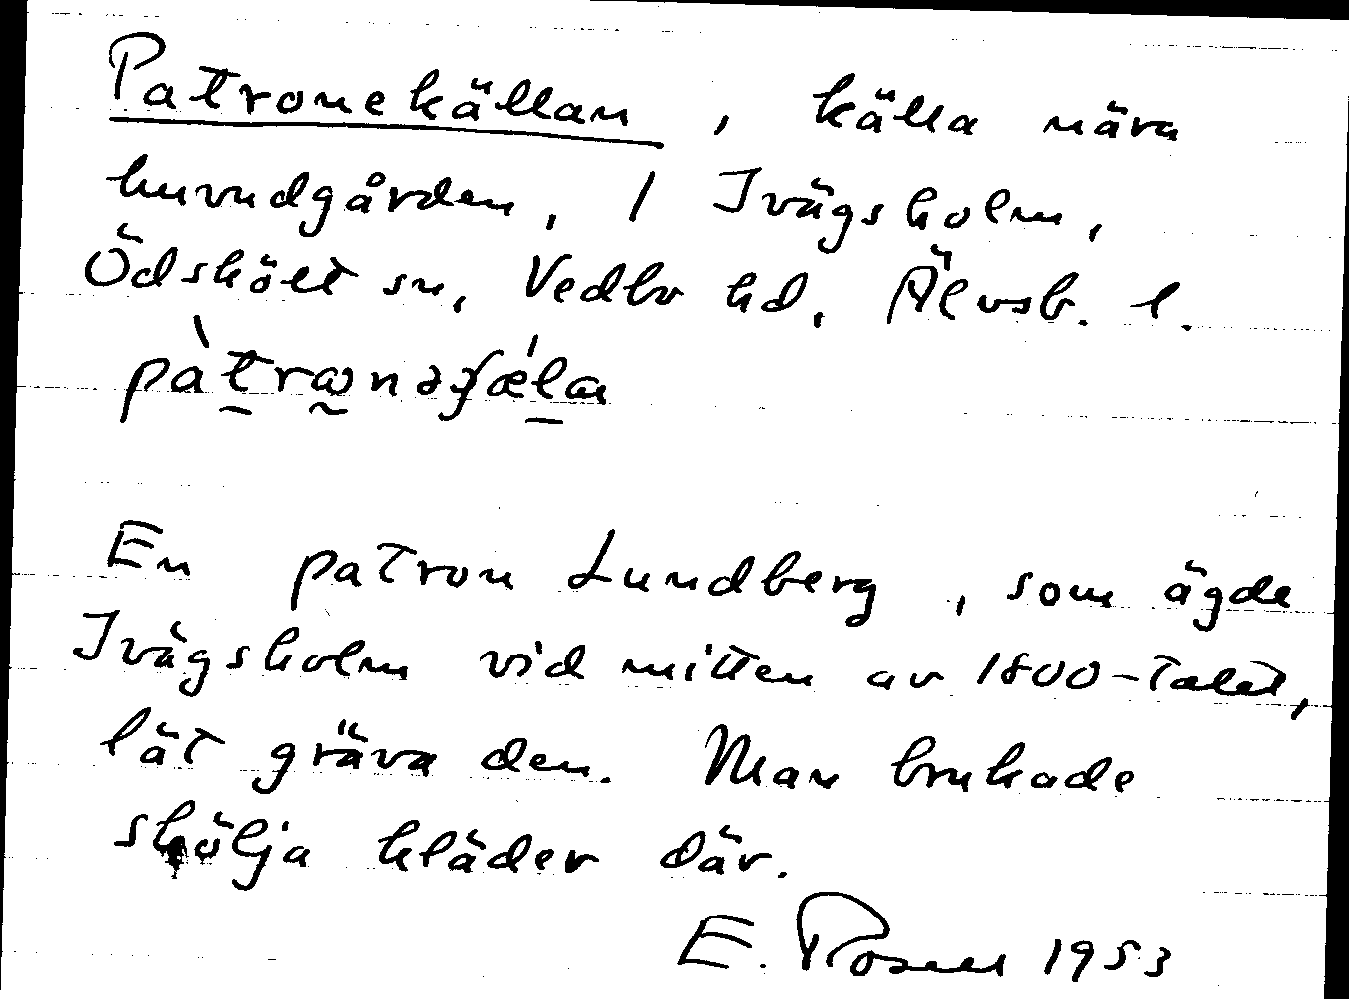 Patronekällan, källa nära
huvudgården, 1 Ivägsholm,
Ödskölt sn, Vedbo hd, Älvsb. l.
En patron Lundberg, som ägde
Ivägsholm vid mitten av 1800-talet,
lät gräva den. Man brukade
skölja kläder där.
E. Rosell 1953